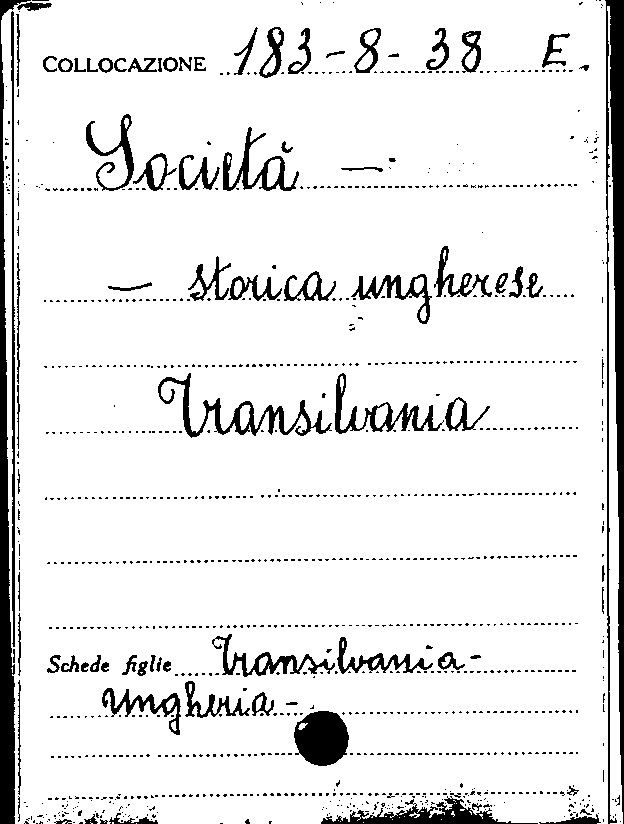 COLLOCAZIONE 183-8-38 E.
Società —
— storica ungherese
Transilvania
Schede figlie Transilvania-
Ungheria-